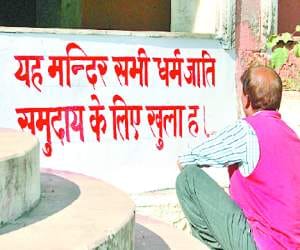 यह मन्दिर सभी धर्म जाति
समुदाय के लिए खुला ह।